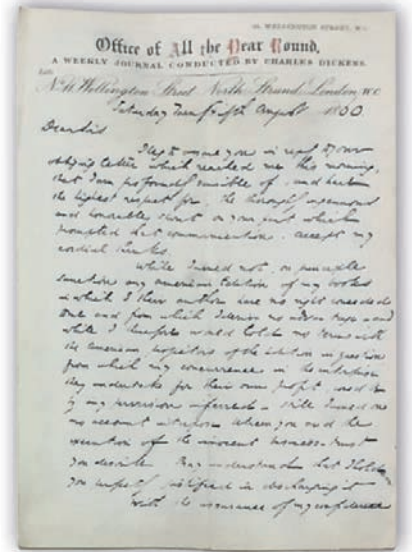 26, WELLINGTON STREET, W.C.
Office of All the Year Round,
A WEEKLY JOURNAL CONDUCTED BY CHARLES DICKENS.
No. 11, Wellington Street North, Strand, London, W.C.
Saturday Twenty Fifth August 1860
Dear Sir
I beg to assure you in reply to your
obliging letter which reached me this morning,
that I am profoundly sensible of, and have
the highest respect for, the thoroughly ingenuous
and honorable spirit on your part which
prompted that communication. accept my
cordial thanks.
While I need not, on principle
sanction any American Edition of my books
in which I their author have no right conceded
me and from which I derive no advantage - and
while I therefore would hold no terms with
the American proprietors of the Edition in question
from which my concurrence in the enterprise
they undertake for their own profit, could be
by any permission inferred - still I need
no account
execution of the innocent business-trust
you describe. Pray understand that I hold
you perfectly justified in discharging it
With the assurance of my confidence